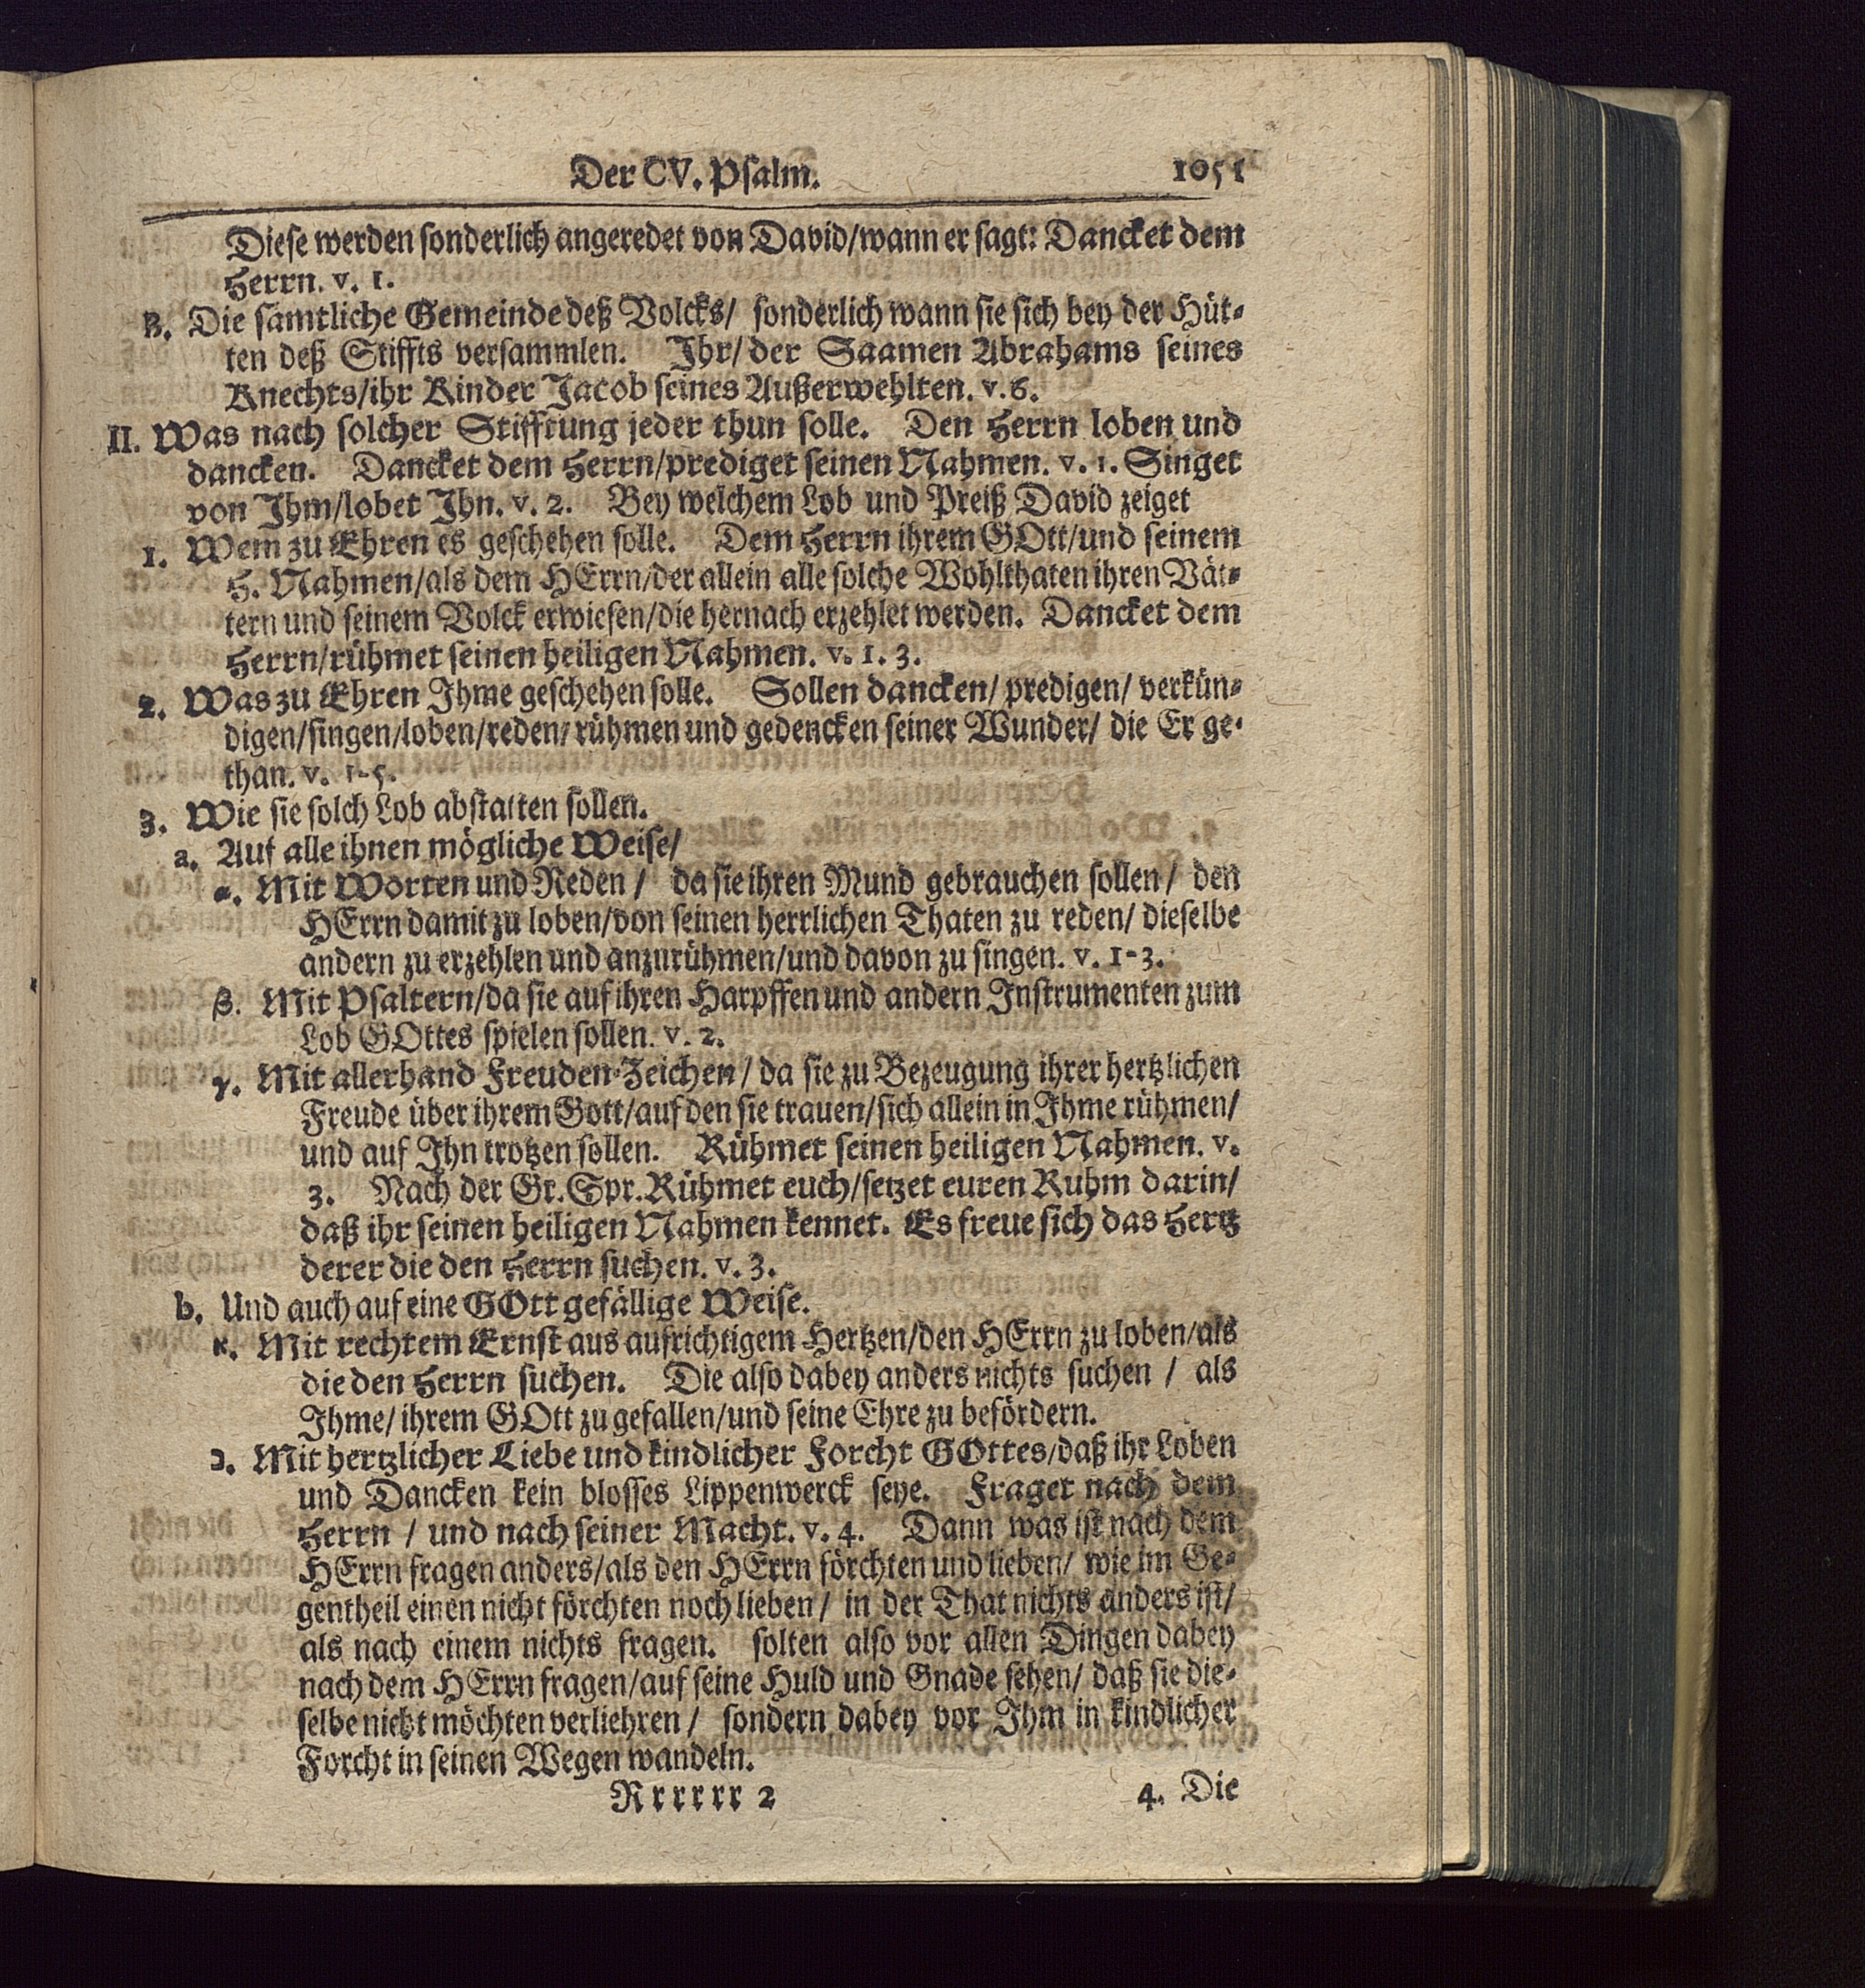 Der CV. Psalm. 1051
Diese werden sonderlich angeredet von David/wann er sagt: Dancket dem
Herrn. v. 1.
B. Die sämtliche Gemeinde deß Volcks/ sonderlich wann sie sich bey der Hüt-
ten deß Stiffts versammlen. Ihr/ der Saamen Abrahams seines
Knechts/ihr Kinder Jacob seines Außerwehlten. v. 6.
II. Was nach solcher Stifftung jeder thun solle. Den Herrn loben und
dancken. Dancket dem Herrn/prediget seinen Nahmen. v. 1. Singet
von Ihm/lobet Ihn. v. 2. Bey welchem Lob und Preiß David zeiget
1. Wem zu Ehren es geschehen solle. Dem Herrn ihrem GOtt/und seinem
H. Nahmen/als dem HErrn/der allein alle solche Wohlthaten ihren Vät-
tern und seinem Volck erwiesen/die hernach erzehlet werden. Dancket dem
Herrn/rühmet seinen heiligen Nahmen. v. 1. 3.
2. Was zu Ehren Ihme geschehen solle. Sollen dancken/ predigen/ verkün-
digen/singen/loben/reden/rühmen und gedencken seiner Wunder/ die Er ge-
than. v. 1-5.
3. Wie sie solch Lob abstatten sollen.
a. Auf alle ihnen mögliche Weise/
α. Mit Worten und Reden / da sie ihren Mund gebrauchen sollen / den
HErrn damit zu loben/von seinen herrlichen Thaten zu reden/ dieselbe
andern zu erzehlen und anzurühmen/und davon zu singen. v. 1-3.
β. Mit Psaltern/da sie auf ihren Harpffen und andern Instrumenten zum
Lob GOttes spielen sollen. v. 2.
γ. Mit allerhand Freuden-Zeichen / da sie zu Bezeugung ihrer hertzlichen
Freude über ihrem Gott/auf den sie trauen/sich allein in Ihme rühmen/
und auf Ihn trotzen sollen. Rühmet seinen heiligen Nahmen. v.
3. Nach der Gr. Spr. Rühmet euch/setzet euren Ruhm darin/
daß ihr seinen heiligen Nahmen kennet. Es freue sich das Hertz
derer die den Herrn suchen. v. 3.
b. Und auch auf eine GOtt gefällige Weise.
א. Mit rechtem Ernst aus aufrichtigem Hertzen/den HErrn zu loben/als
die den Herrn suchen. Die also dabey anders nichts suchen / als
Ihme/ ihrem GOtt zu gefallen/und seine Ehre zu befördern.
ב. Mit hertzlicher Liebe und kindlicher Forcht GOttes/daß ihr Loben
und Dancken kein blosses Lippenwerck seye. Fraget nach dem
Herrn / und nach seiner Macht. v. 4. Dann was ist nach dem
HErrn fragen anders/als den HErrn förchten und lieben/ wie im Ge-
gentheil einen nicht förchten noch lieben / in der That nichts anders ist/
als nach einem nichts fragen. solten also vor allen Dingen dabey
nach dem HErrn fragen/auf seine Huld und Gnade sehen/ daß sie die-
selbe nicht möchten verliehren / sondern dabey vor Ihm in kindlicher
Forcht in seinen Wegen wandeln.
Rrrrrr 2 4. Die